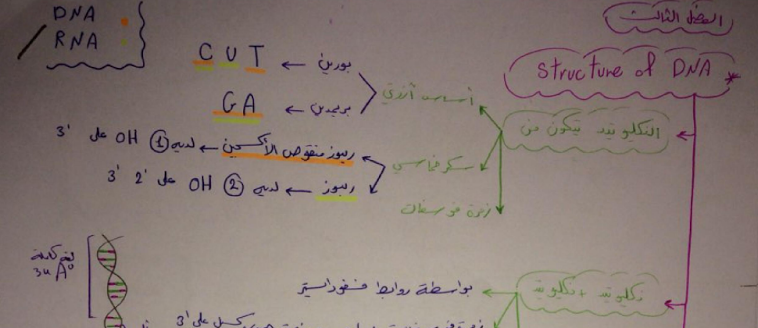 الفصل الثالث
DNA
RNA
* structure of DNA
النكليوتيد يتكون من
أساس أزوتي
بورين ← C U T
بريميدين ← G A
سكر خماسي
ريبوز منقوص الأكسجين ← لديه ① OH على 3'
ريبوز ← لديه ② OH على 2' 3'
زمرة فوسفات
نكليوتيد + نكليوتيد
بواسطة روابط فسفوداستر
34 A°
على 3'